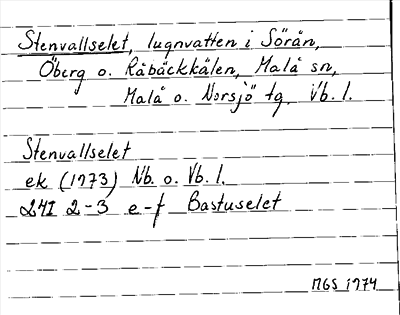 Stenvallselet, lugnvatten i Sörån,
Öberg o. Råbäckkälen, Malå sn,
Malå o. Norsjö tg, Vb. l.
Stenvallselet
ek (1973) Nb. o. Vb. l.
24I 2-3 e-f Bastuselet
MGS 1974